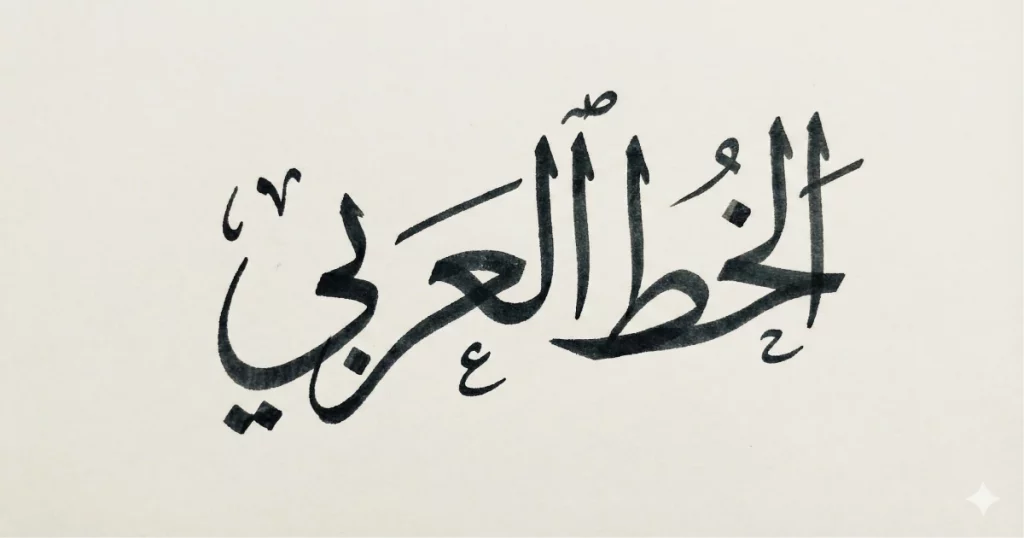 الخُط ٱلعربي